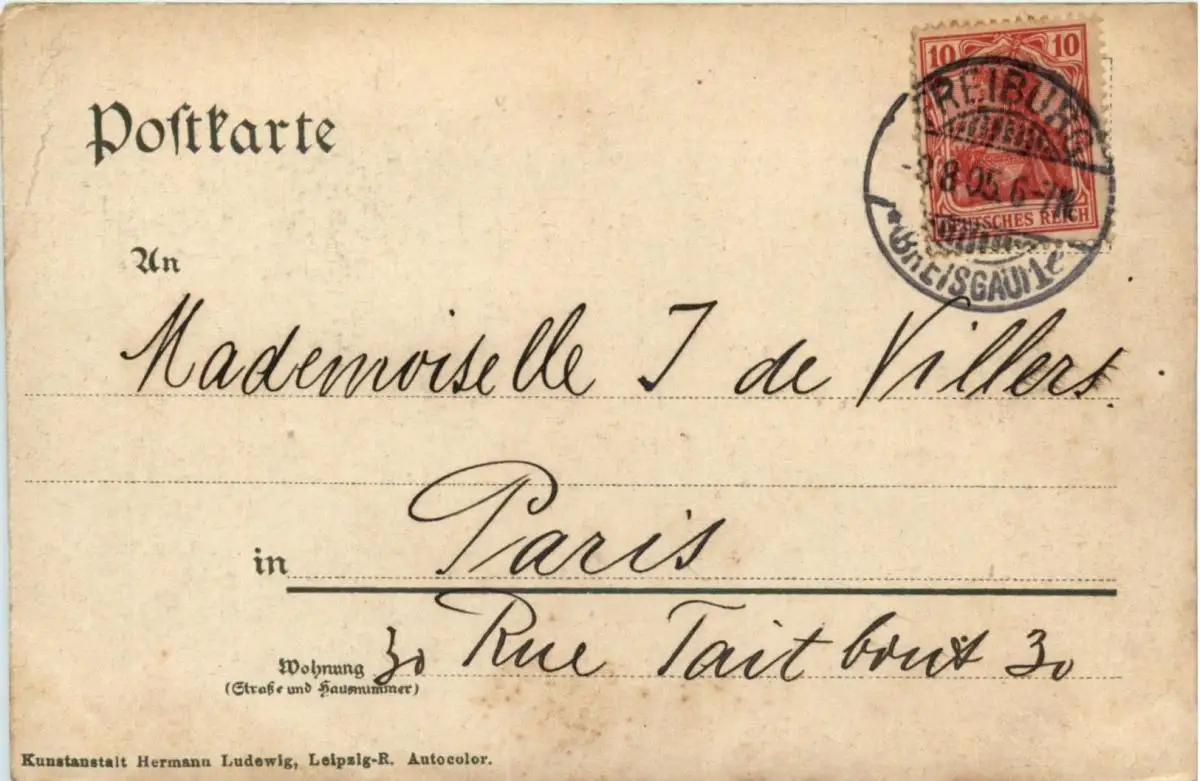 10 10
DEUTSCHES REICH
FREIBURG
8 05 6-7N
* BREISGAU 1
Postkarte
An
Mademoiselle J de Villers.
in Paris
30 Rue Taitbout 30
Wohnung
(Straße und Hausnummer)
Kunstanstalt Hermann Ludewig, Leipzig-R. Autocolor.